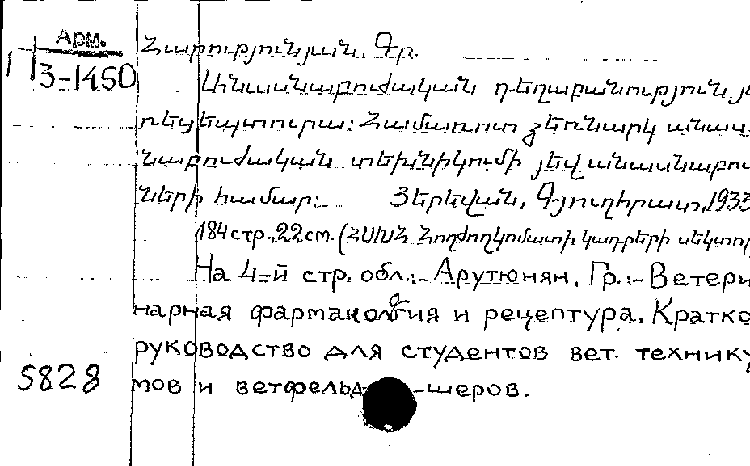 Арм.
1 3-1450
Հարությունյան Գր.
Անասնաբուժական դեղաբանություն յ
ռեցեպտուրա։ Համառոտ ձեռնարկ անաս
նաբուժական տեխնիկումի յեվ անասնաբու
ների համար։ Յերեվան, Գյուղհրատ, 1933
184 стр., 22 см. (ՀՍԽՀ Հողժողկոմատի կադրերի սեկտոր
На 4-й стр. обл.:- Арутюнян, Гр.:- Ветери-
нарная фармакология и рецептура. Кратко
руководство для студентов вет. технику
5828 мов и ветфельд-шеров.